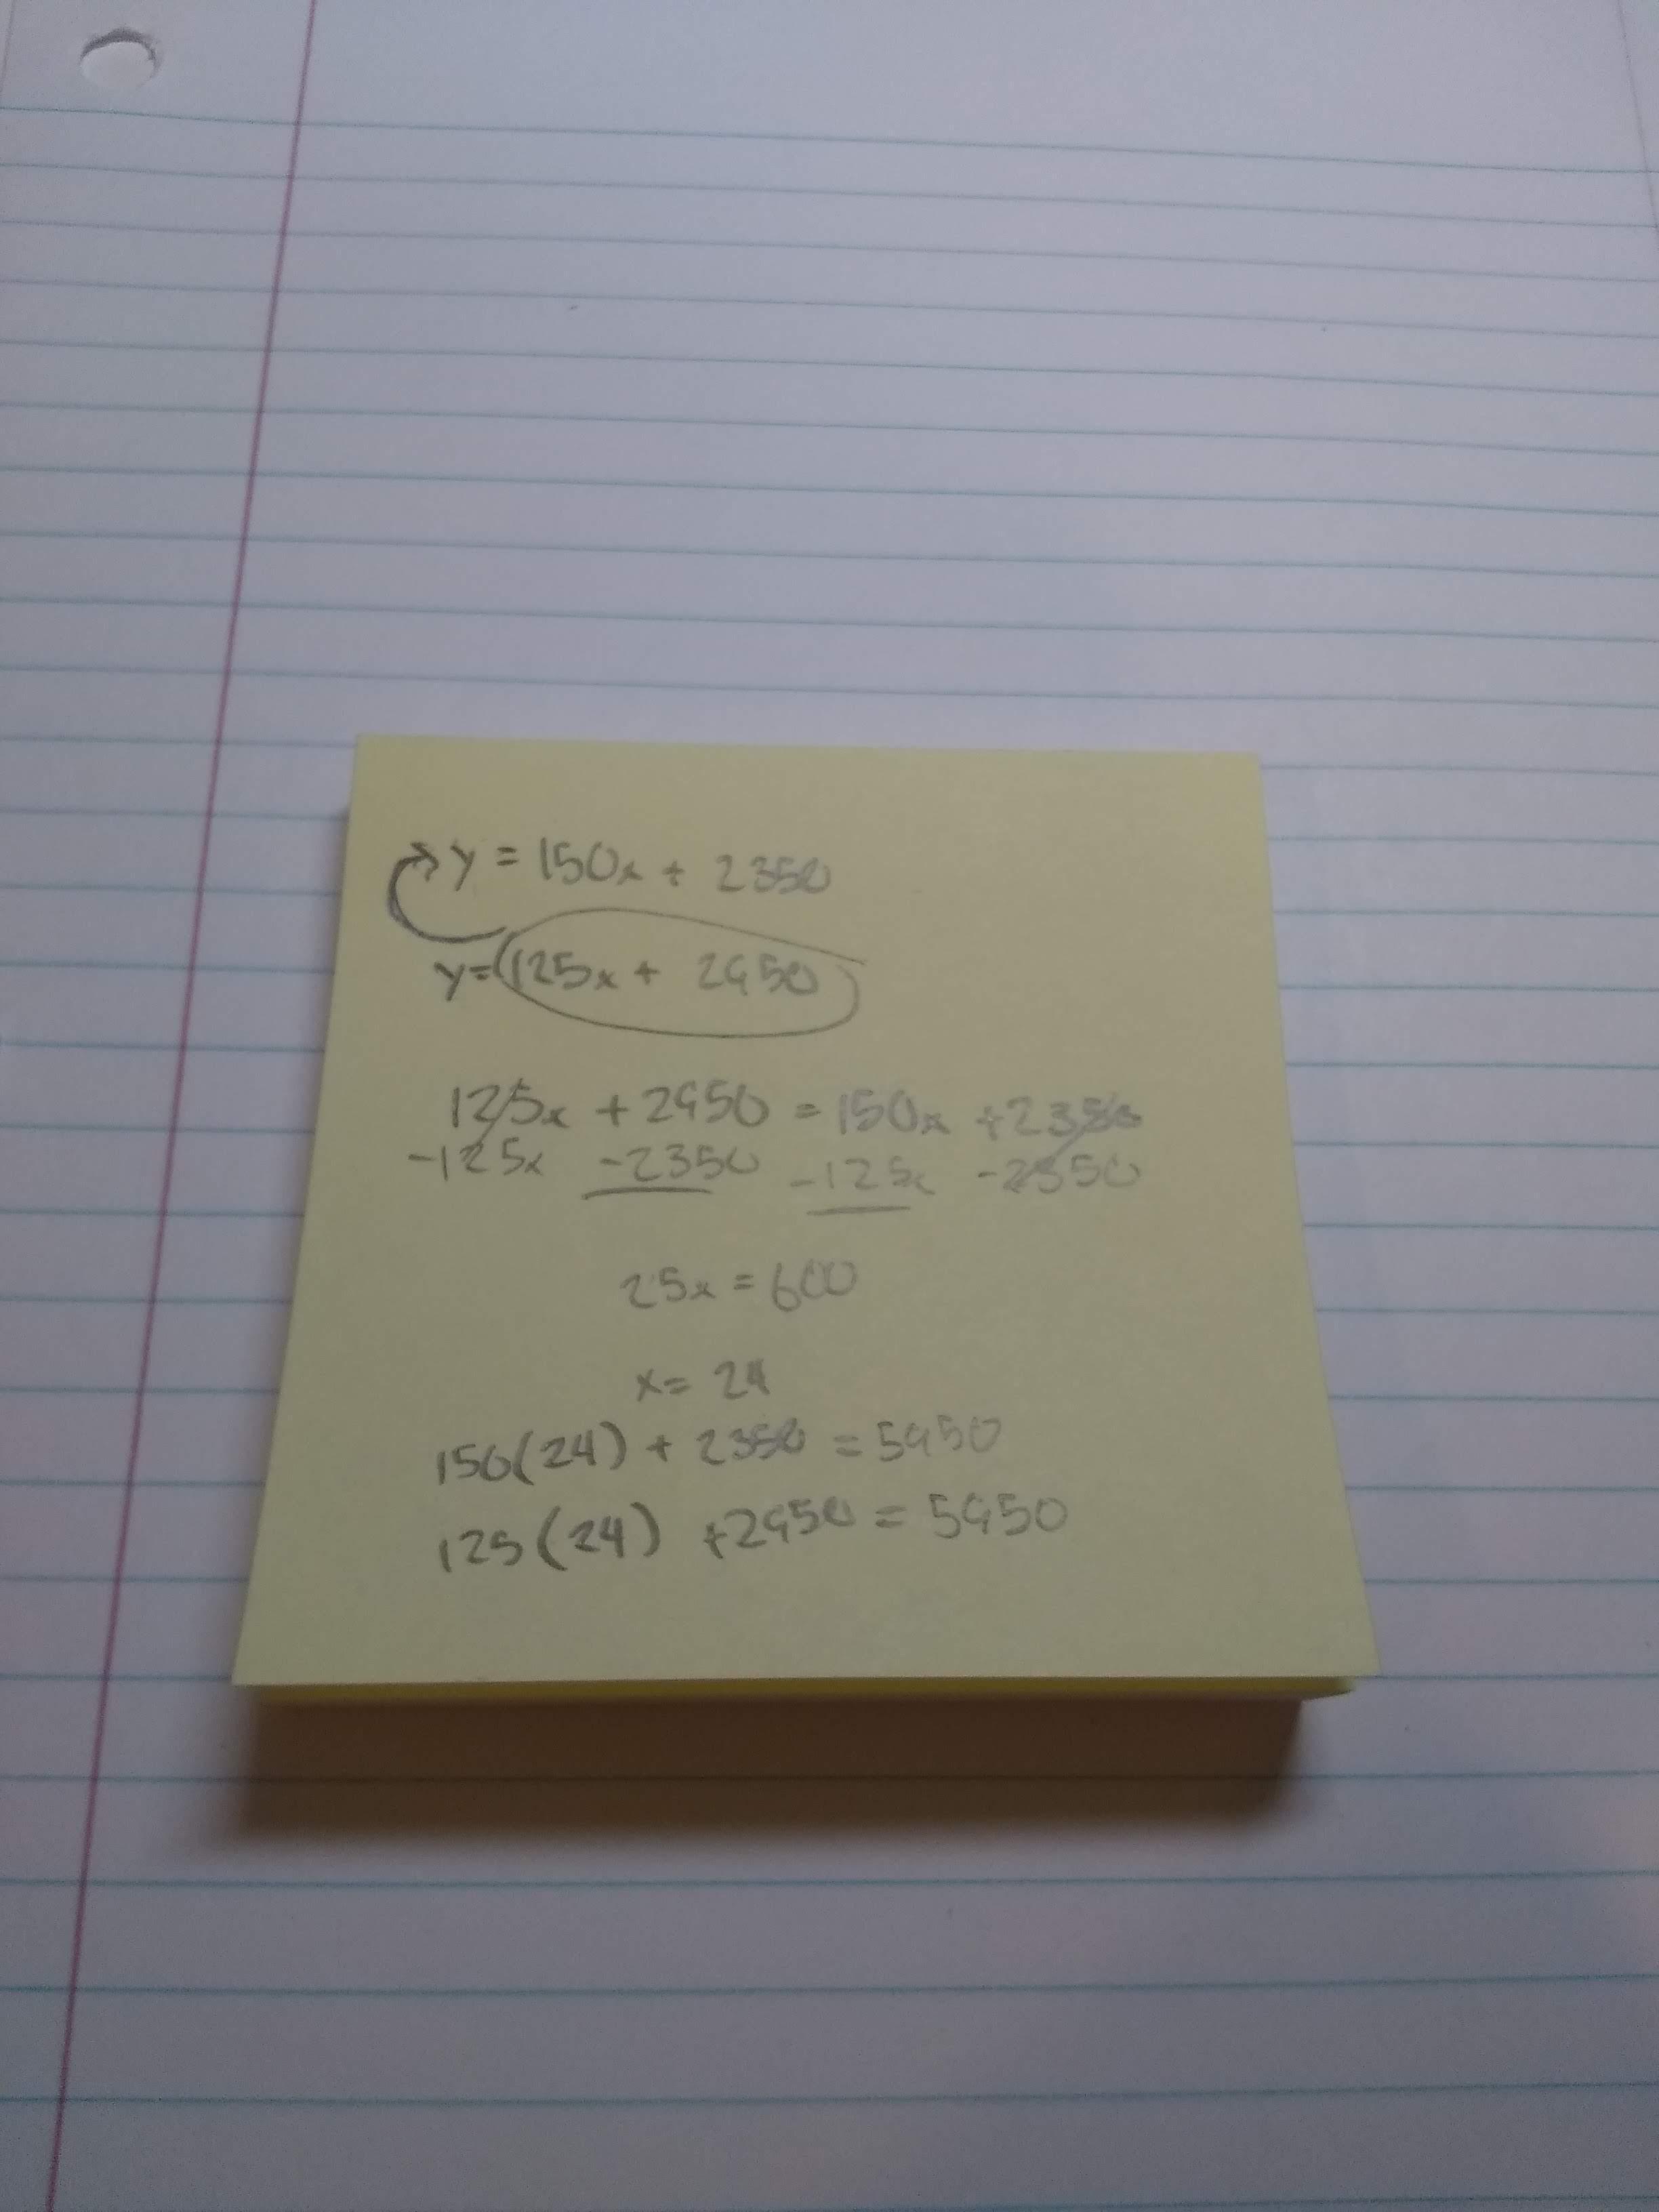 y = 150x + 2350
y = 125x + 2950
125x + 2950 = 150x + 2350
-125x -2350 -125x -2350
25x = 600
x = 24
150(24) + 2350 = 5950
125(24) + 2950 = 5950